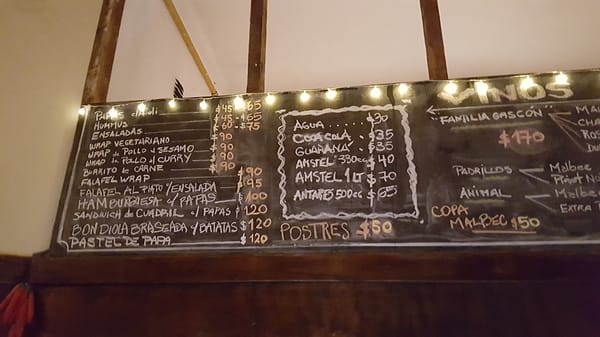 PAPAS ALIOLI $45 - $65
HUMMUS $45 - $65
ENSALADAS $60 - $75
WRAP VEGETARIANO $90
WRAP DE POLLO Y SESAMO $90
WRAP DE POLLO AL CURRY $90
BURRITO DE CARNE $90
FALAFEL WRAP $90
FALAFEL AL PLATO / ENSALADA $95
HAMBURGUESA C/ PAPAS $100
SANDWICH DE CUADRIL C/ PAPAS $120
BONDIOLA BRASEADA C/ BATATAS $120
PASTEL DE PAPA $120
AGUA $30
COCA COLA $35
GUARANA $35
AMSTEL 330cc $40
AMSTEL 1LT $70
ANTARES 500cc $65
POSTRES $50
VINOS
FAMILIA GASCÓN
$170
PADRILLOS Malbec
ANIMAL Malbec
EXTRA
COPA
MALBEC $50